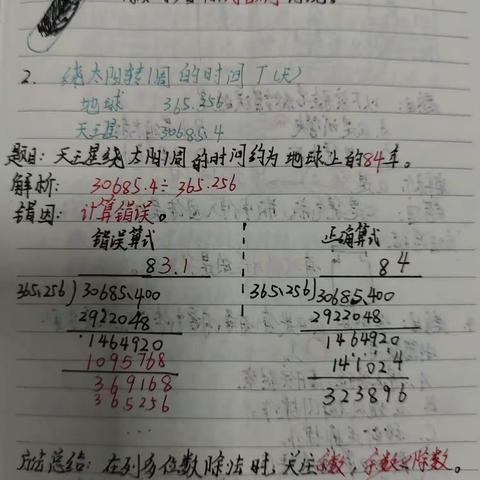 2. 绕太阳转1周的时间T(天)
地球 365.256
天王星 30685.4
题目：天王星绕太阳1周的时间约为地球上的84年。
解析： 30685.4÷365.256
错因：计算错误。
错误算式 正确算式
83.1 84
365.256)30685.400 365.256)30685.400
2922048 2922048
1464920 1464920
1095768 141024
369168 323896
365256
...
方法总结：在列多位数除法时，关注 余数<除数。